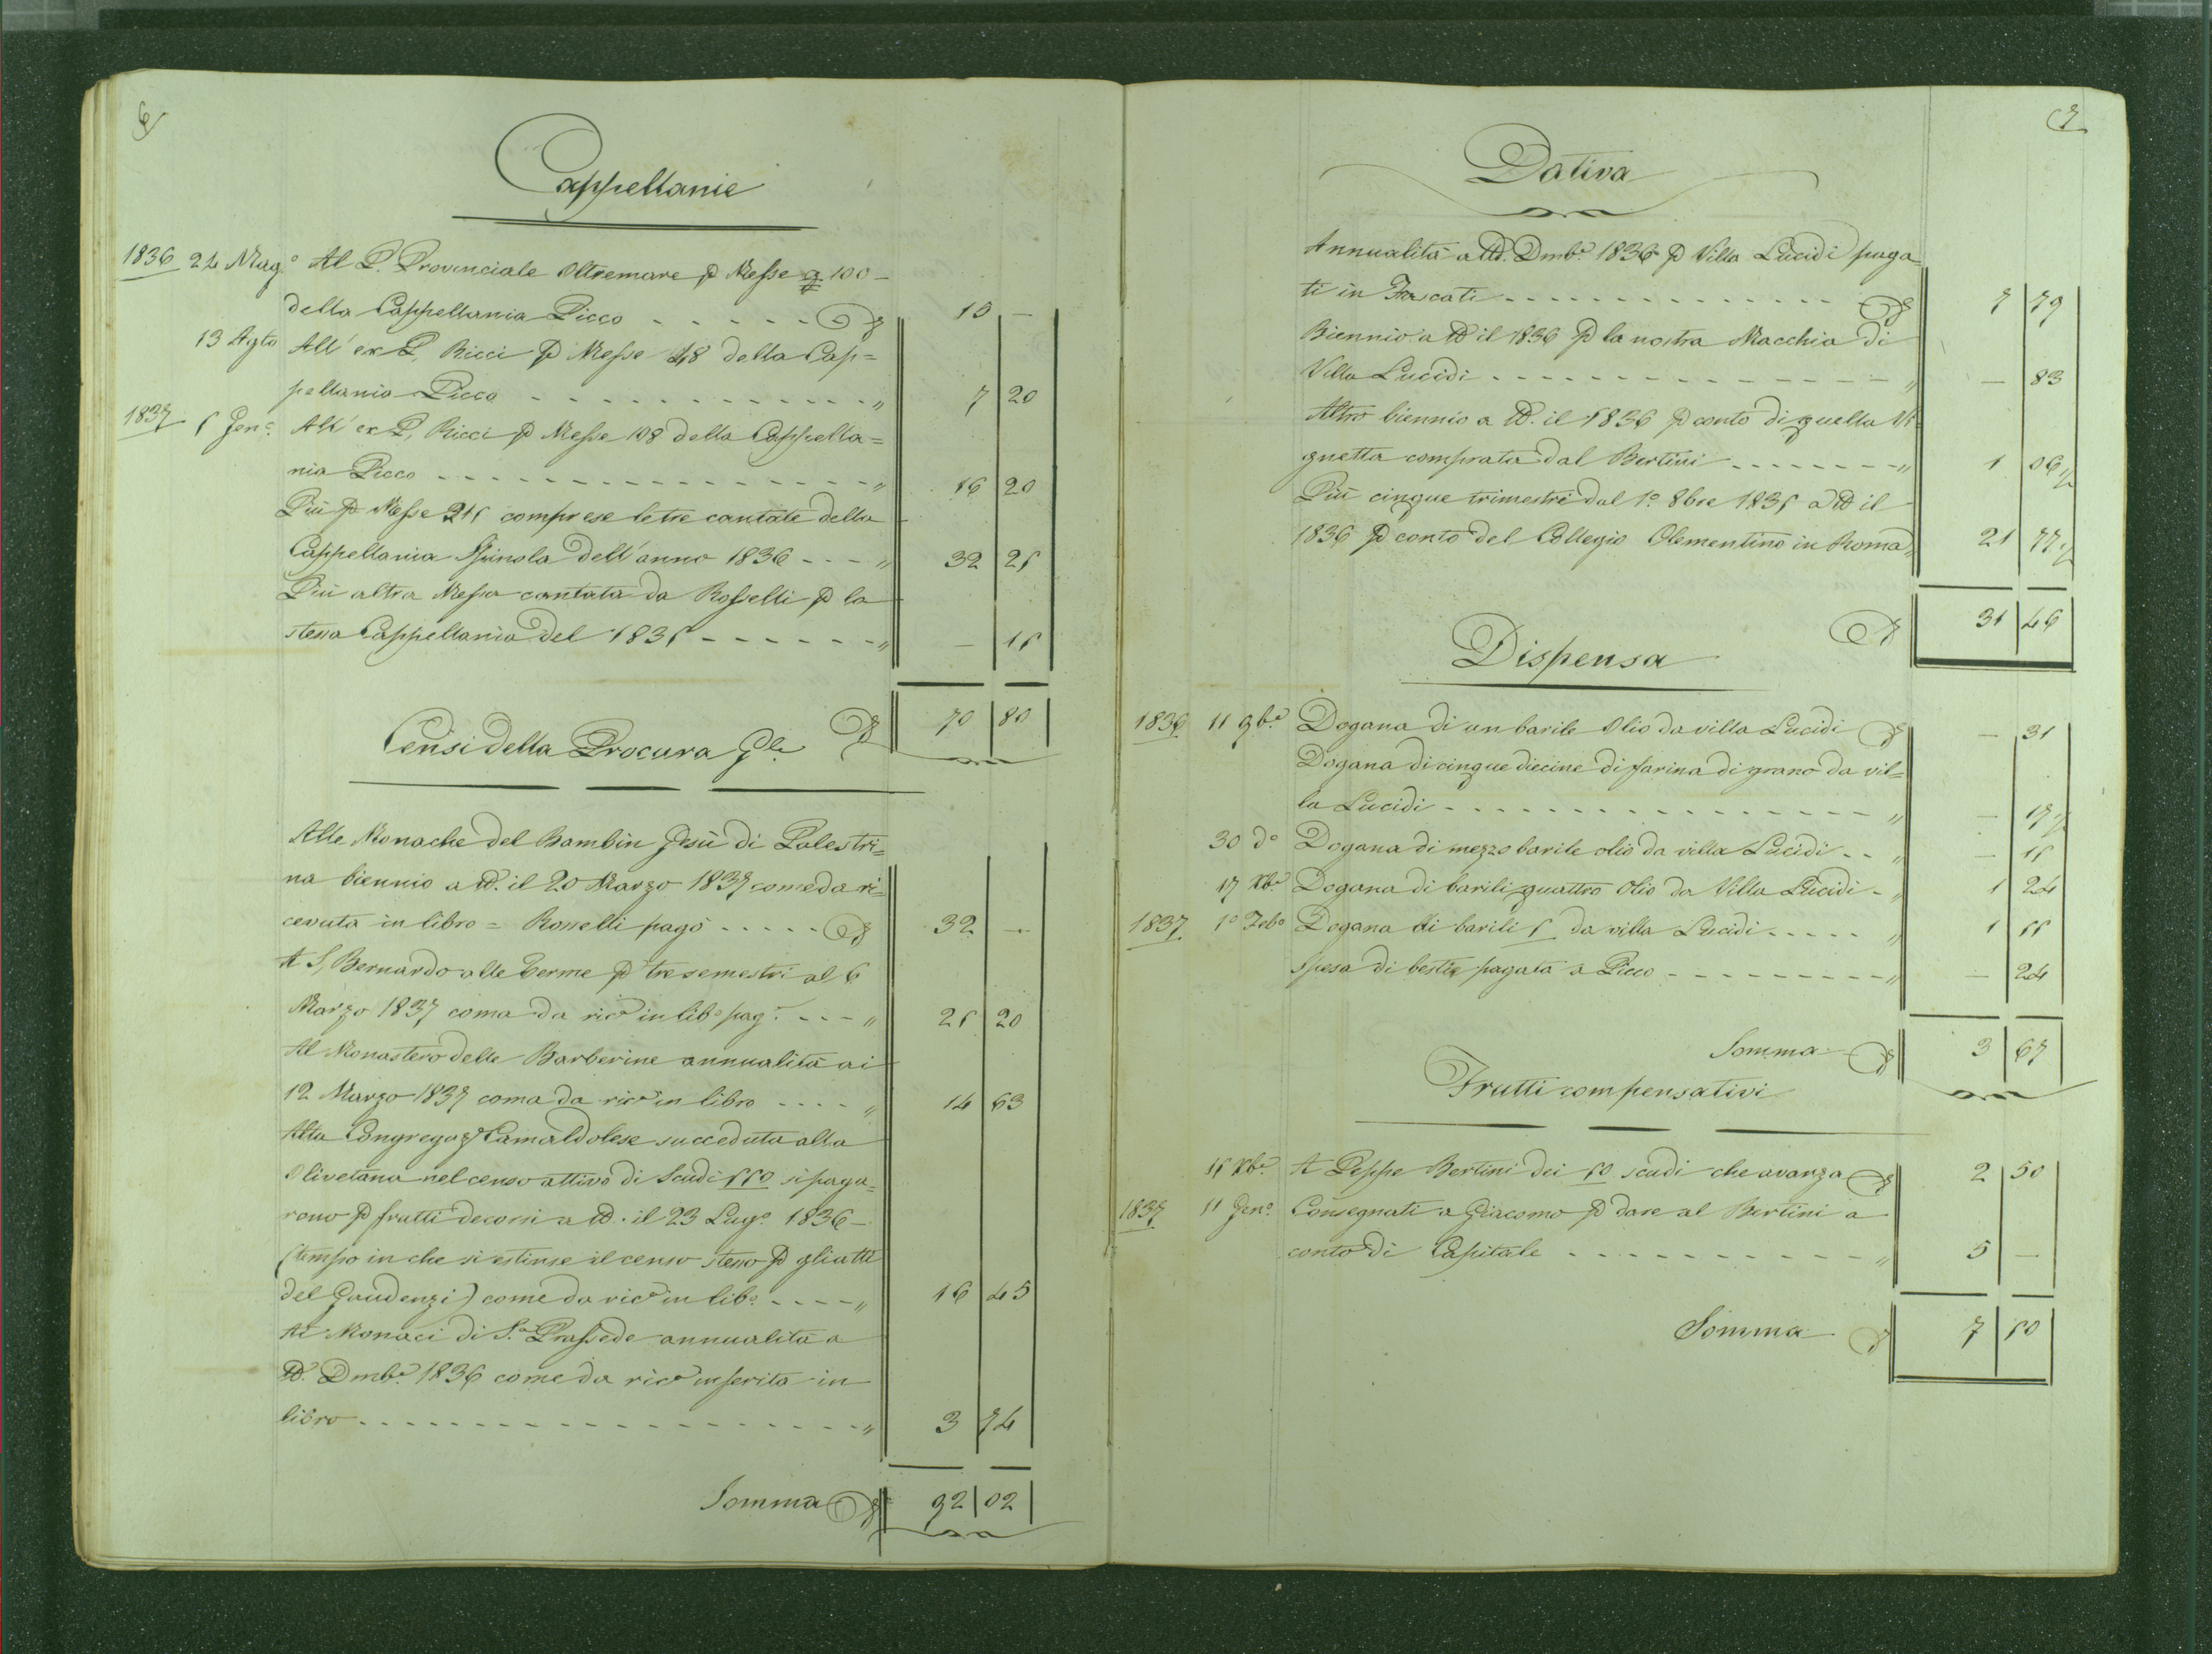 6
Cappellanie
1836 24 Mag.° Al P. Provinciale Oltremare p Messe 100 –
della Cappellania Picco - - - - - - 15 —
13 Agto All' ex P. Ricci p Messe 48 della Cap=
pellania Picco - - - - - - - - - - - - „ 7 20
1837 5 Gen.° All' ex P. Ricci p Messe 108 della Cappella=
nia Picco - - - - - - - - - - - - - - - „ 16 20
Più p Messe 215 comprese le tre cantate della
Cappellania Spinola dell'anno 1836 - - - „ 32 25
Più altra Messa cantata da Rosselli p la
stessa Cappellania del 1835 - - - - - - „ — 15
70 80
Censi della Procura Gle
Alle Monache del Bambin Gesù di Palestri=
na biennio a tt. il 20 Marzo 1837 come da ri=
cevuta in libro = Rosselli pagò - - - - - 32 —
A S. Bernardo alle Terme p tre semestri al 6
Marzo 1837 coma da ric.a in lib.° pag.° - - - „ 25 20
Al Monastero delle Barberine annualità ai
12 Marzo 1837 coma da ric.a in libro - - - - „ 14 63
Alla Congregaz.e Camaldolese succeduta alla
Olivetana nel censo attivo di Scudi 550 si paga=
rono p frutti decorsi a tt. il 23 Lug.° 1836 –
(tempo in che si estinse il censo stesso p gli atti
del Gaudenzi) come da ric.a in lib.° - - - - „ 16 45
Ai Monaci di S.a Prassede annualità a
tt. Dmb.e 1836 come da ric.a inserita in
libro - - - - - - - - - - - - - - - - - - „ 3 74
Somma 92 02
7
Dativa
Annualità a tt. Dmb.e 1836 p Villa Lucidi paga=
ti in Frascati - - - - - - - - - - - - - - 7 79
Biennio a tt il 1836 p la nostra Macchia di
Villa Lucidi - - - - - - - - - - - - - - - „ — 83
Altro biennio a tt. il 1836 p conto di quella Vi=
gnetta comprata dal Bertini - - - - - - - - „ 1 06½
Più cinque trimestri dal 1.° 8bre 1835 a tt il
1836 p conto del Collegio Clementino in Roma „ 21 77½
31 46
Dispensa
1836 11 9b.e Dogana di un barile Olio da villa Lucidi — 31
Dogana di cinque diecine di farina di grano da vil=
la Lucidi - - - - - - - - - - - - - - - - „ — 17½
30 d° Dogana di mezzo barile olio da villa Lucidi - - „ — 15
17 Xb.e Dogana di barili quattro Olio da Villa Lucidi - „ 1 24
1837 1° Feb° Dogana di barili 5 da villa Lucidi - - - - - „ 1 55
Spesa di bestie pagata a Picco - - - - - - - - - „ — 24
Somma 3 67
Frutti compensativi
15 Xb.e A Peppe Bertini dei 50 scudi che avanza 2 50
1837 11 Gen.° Consegnati a Giacomo p dare al Bertini a
conto di Capitale - - - - - - - - - - - - „ 5 —
Somma 7 50